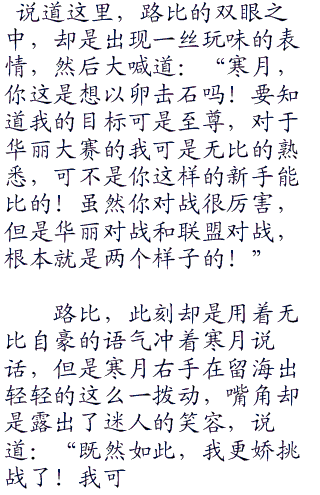 说道这里，路比的双眼之
中，却是出现一丝玩味的表
情，然后大喊道：“寒月，
你这是想以卵击石吗！要知
道我的目标可是至尊，对于
华丽大赛的我可是无比的熟
悉，可不是你这样的新手能
比的！虽然你对战很厉害，
但是华丽对战和联盟对战，
根本就是两个样子的！”
路比，此刻却是用着无
比自豪的语气冲着寒月说
话，但是寒月右手在留海出
轻轻的这么一拨动，嘴角却
是露出了迷人的笑容，说
道：“既然如此，我更娇挑
战了！我可